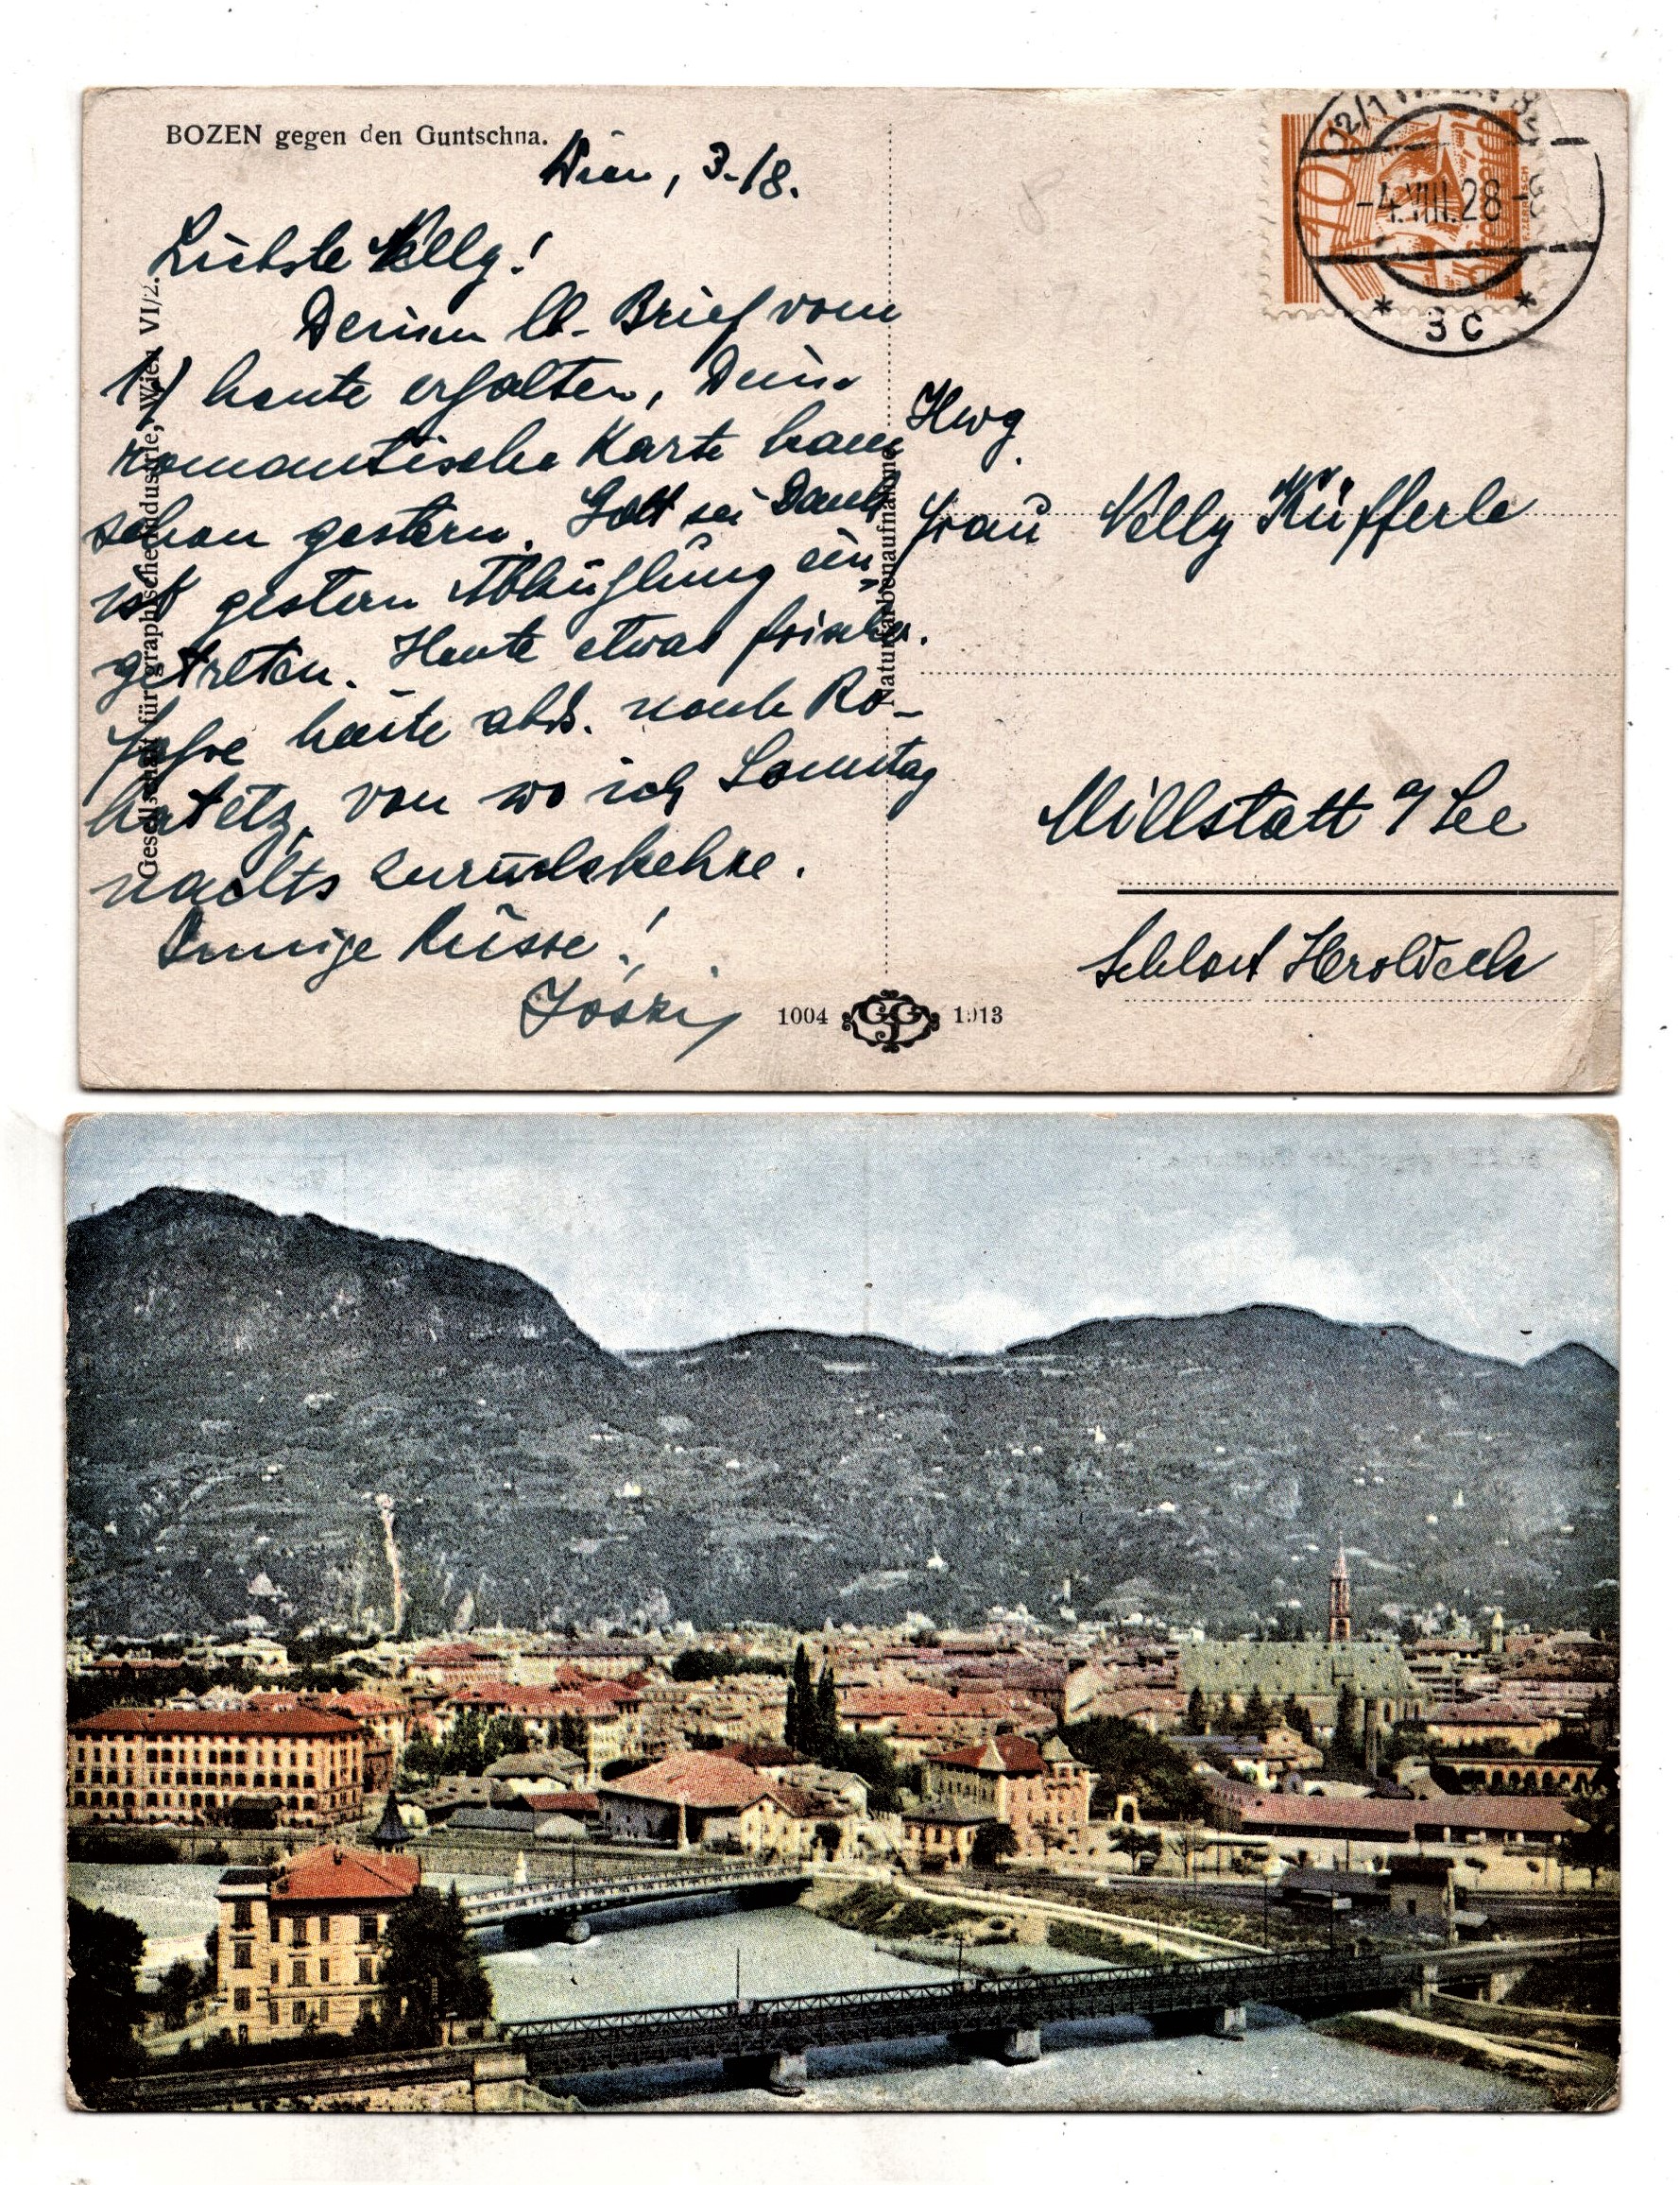 BOZEN gegen den Guntschna.
Wien, 3./8.
Liebste Nelly!
Deinen lb. Brief vom
1./ heute erhalten, Deine
romantische Karte kam
schon gestern. Gott sei Dank
ist gestern Abkühlung ein=
getreten. Heute etwas frischer.
Fahre heute abds. nach Ro-
hatetz, von wo ich Sonntag
nachts zurückkehre.
Innige Küsse!
Joški
Gesellschaft für graphische Industrie, Wien VI/2.
Naturfarbenaufnahme
1004 GGJ 1913
10
12/1
-4.VIII.28-8
* 3c *
Hwg.
Frau Nelly Küfferle
Millstatt a/See
Schloss Heroldeck